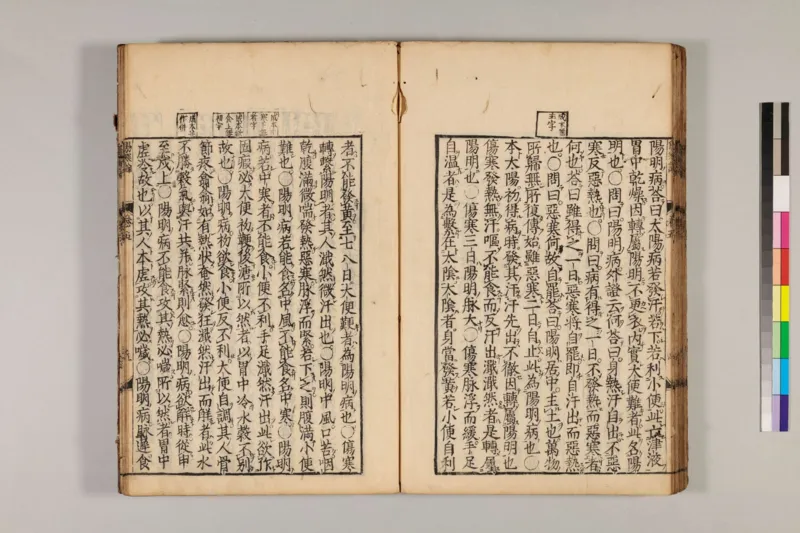 陽明病答曰太陽病若發汗若下若利小便此亡津液
胃中乾燥因轉屬陽明不更衣内實大便難者此名陽
明也〇問曰陽明病外證云何答曰身熱汗自出不惡
寒反惡熱也〇問曰病有得之一日不發熱而惡寒者
何也答曰雖得之一日惡寒將自罷即自汗出而惡熱
也〇問曰惡寒何故自罷答曰陽明居中主土也萬物
所歸無所復傳始雖惡寒二日自止此為陽明病也〇
本太陽初得病時發其汗汗先出不徹因轉屬陽明也
傷寒發熱無汗嘔不能食而反汗出濈濈然者是轉屬
陽明也〇傷寒三日陽明脉大〇傷寒脉浮而緩手足
自温者是為繫在太陰太陰者身當發黄若小便自利
者不能發黄至七八日大便難者為陽明病也〇傷寒
轉繫陽明者其人濈然微汗出也〇陽明中風口苦咽
乾腹滿微喘發熱惡寒脉浮而緊若下之則腹滿小便
難也〇陽明病若能食名中風不能食名中寒〇陽明
病若中寒者不能食小便不利手足濈然汗出此欲作
固瘕必大便初鞕後溏所以然者以胃中冷水穀不別
故也〇陽明病初欲食小便反不利大便自調其人骨
節疼翕翕如有熱狀奄然發狂濈然汗出而解者此水
不勝穀氣與汗共并脉緊則愈〇陽明病欲解時從申
至戌上〇陽明病不能食攻其熱必噦所以然者胃中
虚冷故也以其人本虚攻其熱必噦〇陽明病脉遲食